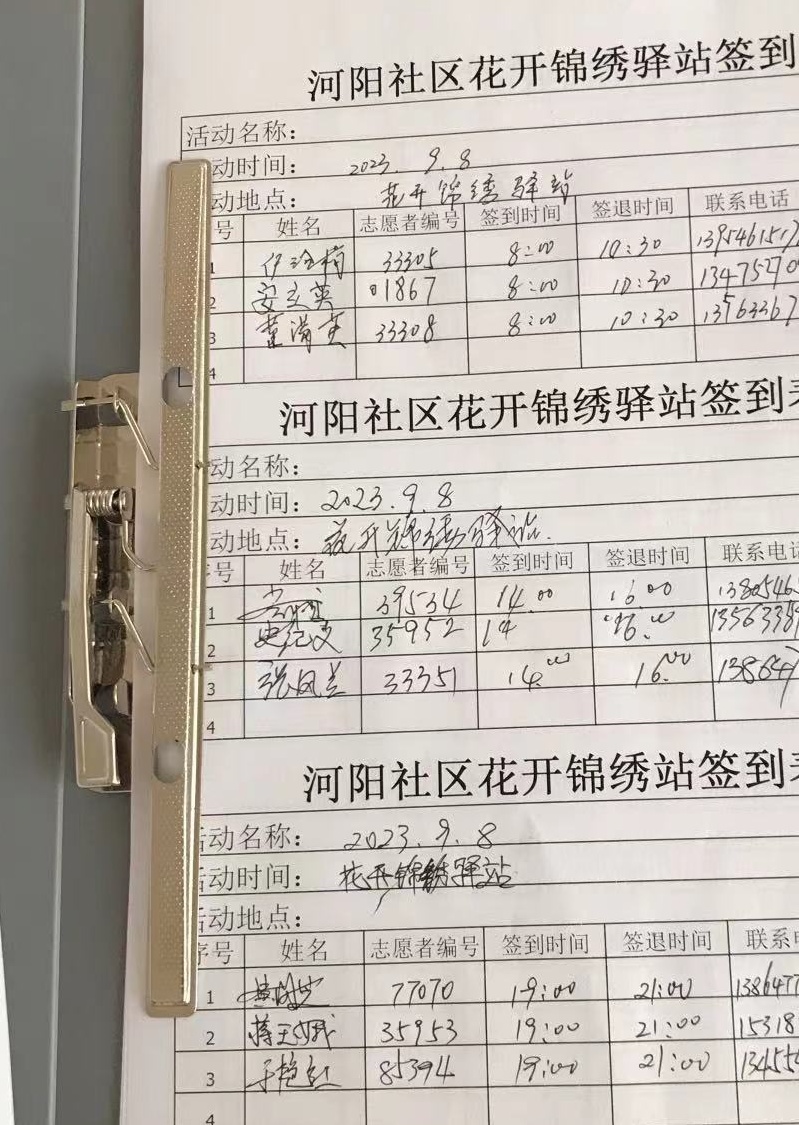 河阳社区花开锦绣驿站签到
活动名称：
动时间： 2023. 9. 8
动地点： 花开锦绣驿站
号 姓名 志愿者编号 签到时间 签退时间 联系电话
1 33305 8:00 10:30 1395461517
2 安立英 01867 8:00 10:30 13475270
3 董满英 33308 8:00 10:30 13563367
4
河阳社区花开锦绣驿站签到表
动名称：
动时间： 2023.9.8
动地点： 花开锦绣驿站.
序号 姓名 志愿者编号 签到时间 签退时间 联系电话
1 39534 14.00 16.00 1380546
2 史纪文 35952 14 16.00 13563389
3 张凤兰 33351 14.00 16.00 138647
4
河阳社区花开锦绣驿站签到表
活动名称： 2023.9.8
活动时间： 花开锦绣驿站
活动地点：
序号 姓名 志愿者编号 签到时间 签退时间 联系电
1 77070 19:00 21:00 1386477
2 35953 19:00 21:00 15318
3 于艳红 85394 19:00 21:00 134554
4